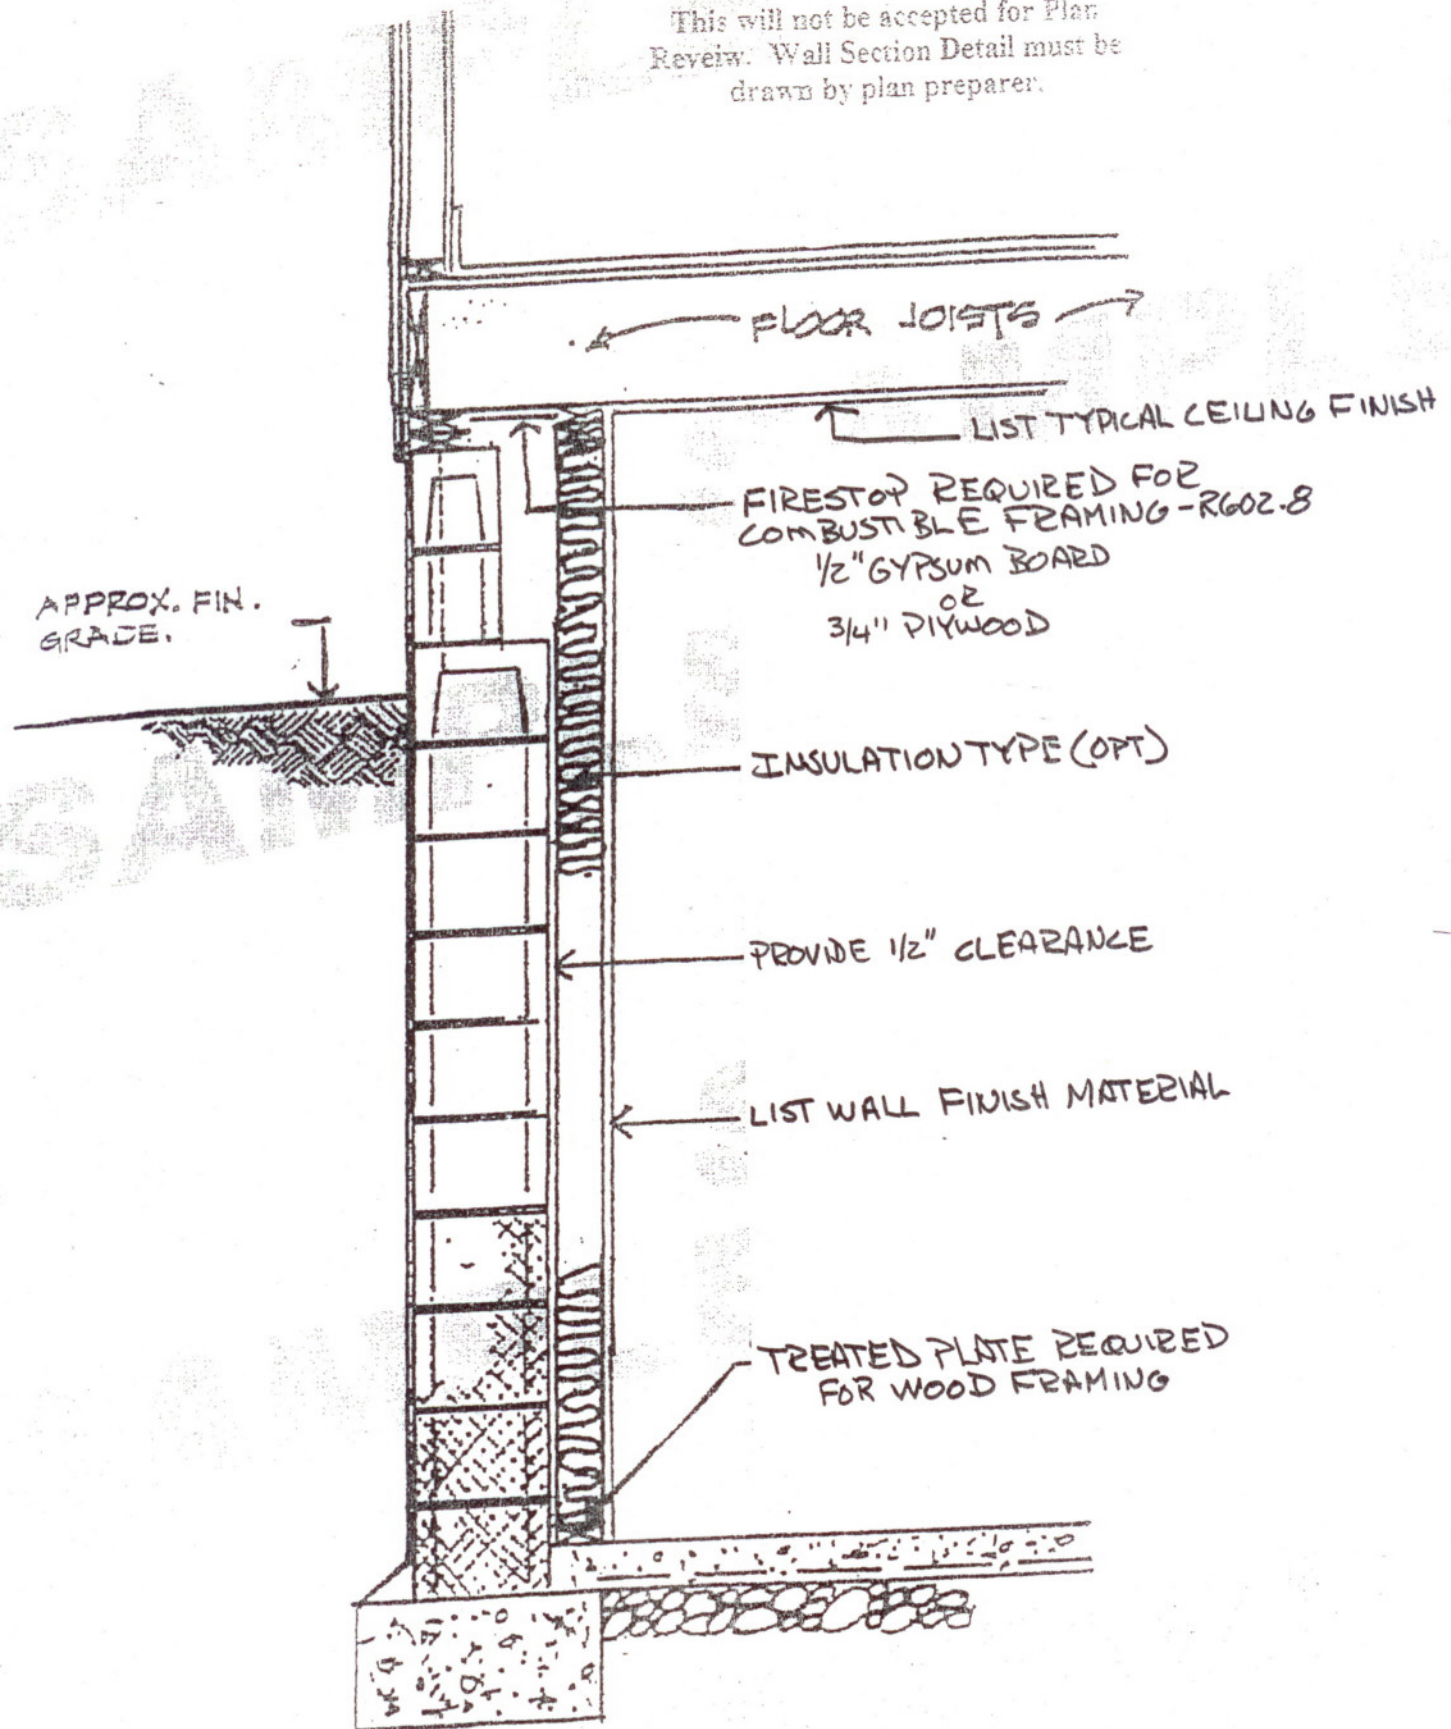 This will not be accepted for Plan
Reveiw. Wall Section Detail must be
drawn by plan preparer.
SAMPLE
FLOOR JOISTS
SAMPLE
LIST TYPICAL CEILING FINISH
FIRESTOP REQUIRED FOR
COMBUSTIBLE FRAMING - R602.8
1/2" GYPSUM BOARD
OR
3/4" PLYWOOD
APPROX. FIN.
GRADE.
INSULATION TYPE (OPT)
SAMPLE
PROVIDE 1/2" CLEARANCE
LIST WALL FINISH MATERIAL
TREATED PLATE REQUIRED
FOR WOOD FRAMING
SAMPLE